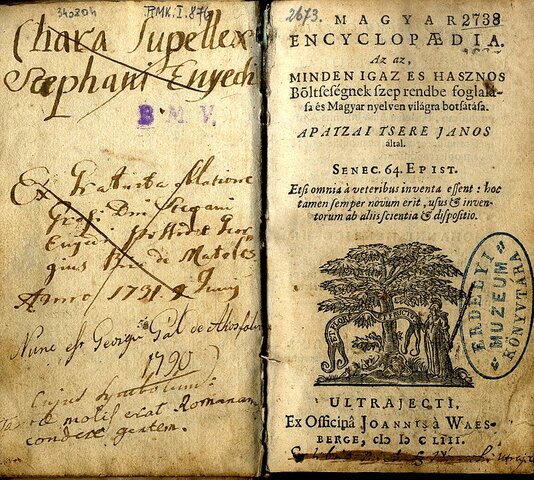 340204
RMK.I.876
Chara Supellex
Stephani Enyedi
B. M. V.
Ex Gratuita Oblatione
Stephani
Enyedi possidet Geor
gius
Anno 1731. 9 Junij
Nunc est Georgii Gál de
1790
Cujus Symbolum:
Tantae molis erat Romanam
condere gentem.
2673.
2738
MAGYAR
ENCYCLOPÆDIA.
Az az,
MINDEN IGAZ ES HASZNOS
Bőltseségnek szep rendbe foglala-
sa és Magyar nyelven világra botsátása.
APATZAI TSERE JANOS
által.
SENEC. 64. EPIST.
Etsi omnia à veteribus inventa essent: hoc
tamen semper novum erit, usus & inven-
torum ab aliis scientia & dispositio.
ERDÉLYI
MUZEUM
KÖNYVTÁRA
ULTRAJECTI,
Ex Officinâ JOANNIS à WAES-
BERGE, cIɔ Iɔ CLIII.